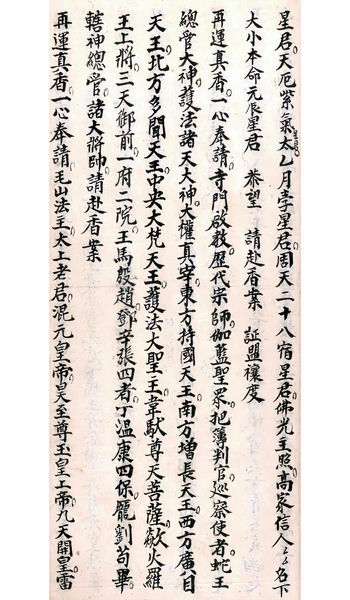 星君天厄紫氣太乙月孛星君周天二十八宿星君佛光主照高家信人名下
大小本命元辰星君 恭望 請赴香案 証盟禳度
再運真香一心奉請寺門啟教歷代宗師伽藍聖眾把簿判官巡察使者蛇王
總管大神護法諸天大神大權真宰東方持國天王南方增長天王西方廣目
天王北方多聞天王中央大梵天王護法大聖王韋馱尊天菩薩欻火羅
王上將三天御前一府二院王馬殷趙鄧辛張四者丁溫康四保龐劉苟畢
轄神總管諸大將帥請赴香案
再運真香一心奉請毛山法主太上老君混元皇帝昊至尊玉皇上帝九天開皇雷